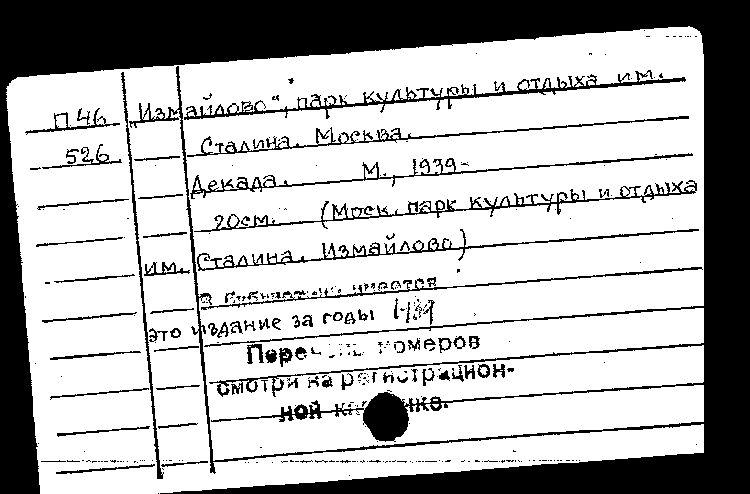 П 46 „Измайлово“, парк культуры и отдыха им.
526 Сталина. Москва.
Декада. М., 1939-
20см. (Моск. парк культуры и отдыха
им. Сталина. Измайлово)
В библиотеке имеется
это издание за годы 1939
Перечень номеров
смотри на регистрацион-
ной карточке.